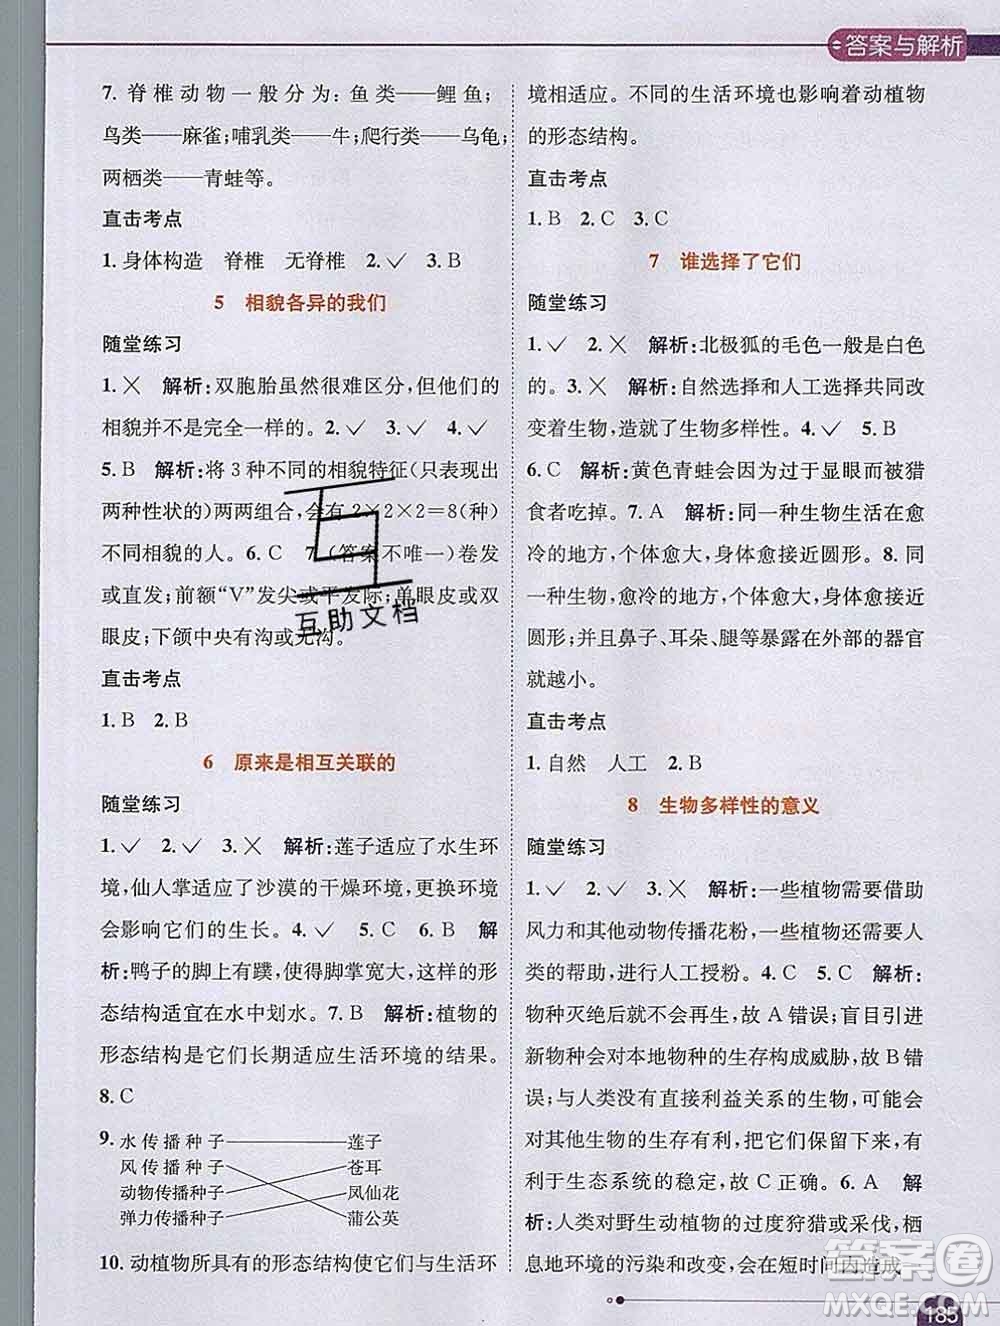 答案与解析
7. 脊椎动物一般分为:鱼类——鲤鱼;
鸟类——麻雀;哺乳类——牛;爬行类——乌龟;
两栖类——青蛙等。
直击考点
1. 身体构造 脊椎 无脊椎 2. ✓ 3. B
5 相貌各异的我们
随堂练习
1. ✕ 解析:双胞胎虽然很难区分,但他们的
相貌并不是完全一样的。2. ✓ 3. ✓ 4. ✓
5. B 解析:将 3 种不同的相貌特征(只表现出
两种性状的)两两组合,会有 2×2×2=8(种)
不同相貌的人。6. C 7. (答案不唯一)卷发
或直发;前额“V”发尖或平发际;单眼皮或双
眼皮;下颌中央有沟或无沟。
直击考点
1. B 2. B
6 原来是相互关联的
随堂练习
1. ✓ 2. ✓ 3. ✕ 解析:莲子适应了水生环
境,仙人掌适应了沙漠的干燥环境,更换环境
会影响它们的生长。4. ✓ 5. C 6. B 解
析:鸭子的脚上有蹼,体重脚掌宽大,这样的形
态结构适宜在水中划水。7. B 解析:植物的
形态结构是它们长期适应生活环境的结果。
8. C
9. 水传播种子 莲子
风传播种子 苍耳
动物传播种子 凤仙花
弹力传播种子 蒲公英
10. 动植物所具有的形态结构使它们与生活环
境相适应。不同的生活环境也影响着动植物
的形态结构。
直击考点
1. B 2. C 3. C
7 谁选择了它们
随堂练习
1. ✓ 2. ✕ 解析:北极狐的毛色一般是白色
的。3. ✕ 解析:自然选择和人工选择共同改
变着生物,造就了生物多样性。4. ✓ 5. B
6. C 解析:黄色青蛙会因为过于显眼而被猎
食者吃掉。7. A 解析:同一种生物生活在愈
冷的地方,个体愈大,身体愈接近圆形。8. 同
一种生物,愈冷的地方,个体愈大,身体愈接近
圆形;并且鼻子、耳朵、腿等暴露在外部的器官
就越小。
直击考点
1. 自然 人工 2. B
8 生物多样性的意义
随堂练习
1. ✓ 2. ✓ 3. ✕ 解析:一些植物需要借助
风力和其他动物传播花粉,一些植物还需要人
类的帮助,进行人工授粉。4. C 5. C 解析:
物种灭绝后就不会再恢复,故 A 错误;盲目引进
新物种会对本地物种的生存构成威胁,故 B 错
误;与人类没有直接利益关系的生物,可能会
对其他生物的生存有利,把它们保留下来,有
利于生态系统的稳定,故 C 正确。6. A 解
析:人类对野生动植物的过度狩猎或采伐,栖
息地环境的污染和改变,会在短时间内造成
185
互助文档
答案圈
MXQE.COM